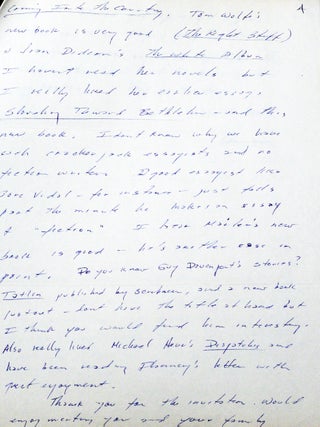 Coming Into the Country. Tom Wolfe's
new book is very good (The Right Stuff)
& Joan Didion's The White Album
I haven't read her novels but
I really liked her earlier essays
Slouching Toward Bethlehem - and this
new book. I don't know why we have
such crackerjack essayists and no
fiction writers. A good essayist like
Gore Vidal - for instance - just falls
apart the minute he makes an essay
"fiction" I hear Mailer's new
book is good - he's another case in
point. Do you know Guy Davenport's stories?
Tatlin published by Scribners, and a new book
just out - don't have the title at hand but
I think you would find him interesting.
Also really liked Michael Herr's Dispatches and
have been reading Flannery's letters with
great enjoyment.
Thank you for the invitation. Would
enjoy meeting you and your family